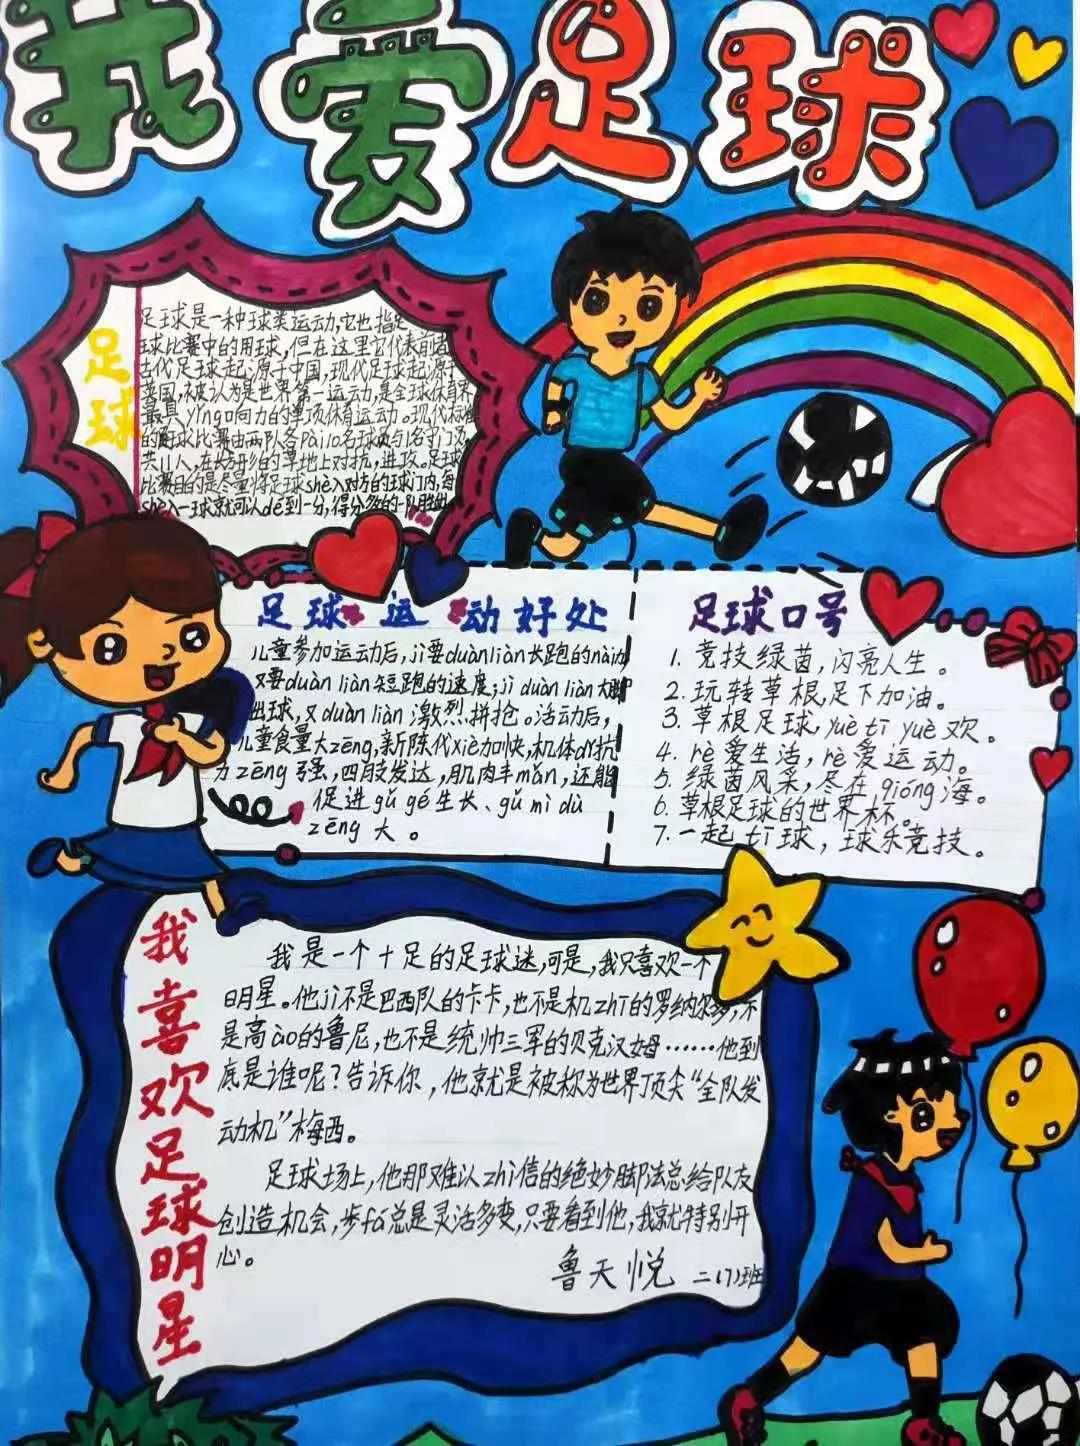 我爱足球
足球
足球是一种球类运动,它也指足
球比赛中的用球,但在这里它代表前者
古代足球起源于中国,现代足球起源
英国,被认为是世界第一运动,是全球体育界
最具yǐng响力的单项体育运动。现代标准
的足球比赛由两队各pài10名球员与1名守门员
共11人,在长方形的草地上对抗,进攻。足球
比赛目的是尽量将足球shè入对方的球门内,每
shè入一球就可以dé到一分,得分多的一队胜出
足球运动好处
儿童参加运动后,jì要duànliàn长跑的nài力
又要duàn liàn短跑的速度;jì duàn liàn大脚
出球,又duàn liàn激烈拼抢。活动后,
儿童食量大zēng,新陈代xiè加快,机体dǐ抗
力zēng强,四肢发达,肌肉丰mǎn,还能
促进gǔ gé生长、gǔ mì dù
zēng大。
足球口号
1. 竞技绿茵,闪亮人生。
2. 玩转草根,足下加油。
3. 草根足球,yuè tī yuè欢。
4. rè爱生活,rè爱运动。
5. 绿茵风采,尽在qióng海。
6. 草根足球的世界杯。
7. 一起tī球,球乐竞技。
我喜欢足球明星
我是一个十足的足球迷,可是,我只喜欢一个
明星。他jì不是巴西队的卡卡,也不是机zhì的罗纳尔多,不
是高ào的鲁尼,也不是统帅三军的贝克汉姆……他到
底是谁呢?告诉你,他就是被称为世界顶尖“全队发
动机”梅西。
足球场上,他那难以zhì信的绝妙脚法总给队友
创造机会,步fá总是灵活多变,只要看到他,我就特别开
心。
鲁天悦 二(7)班